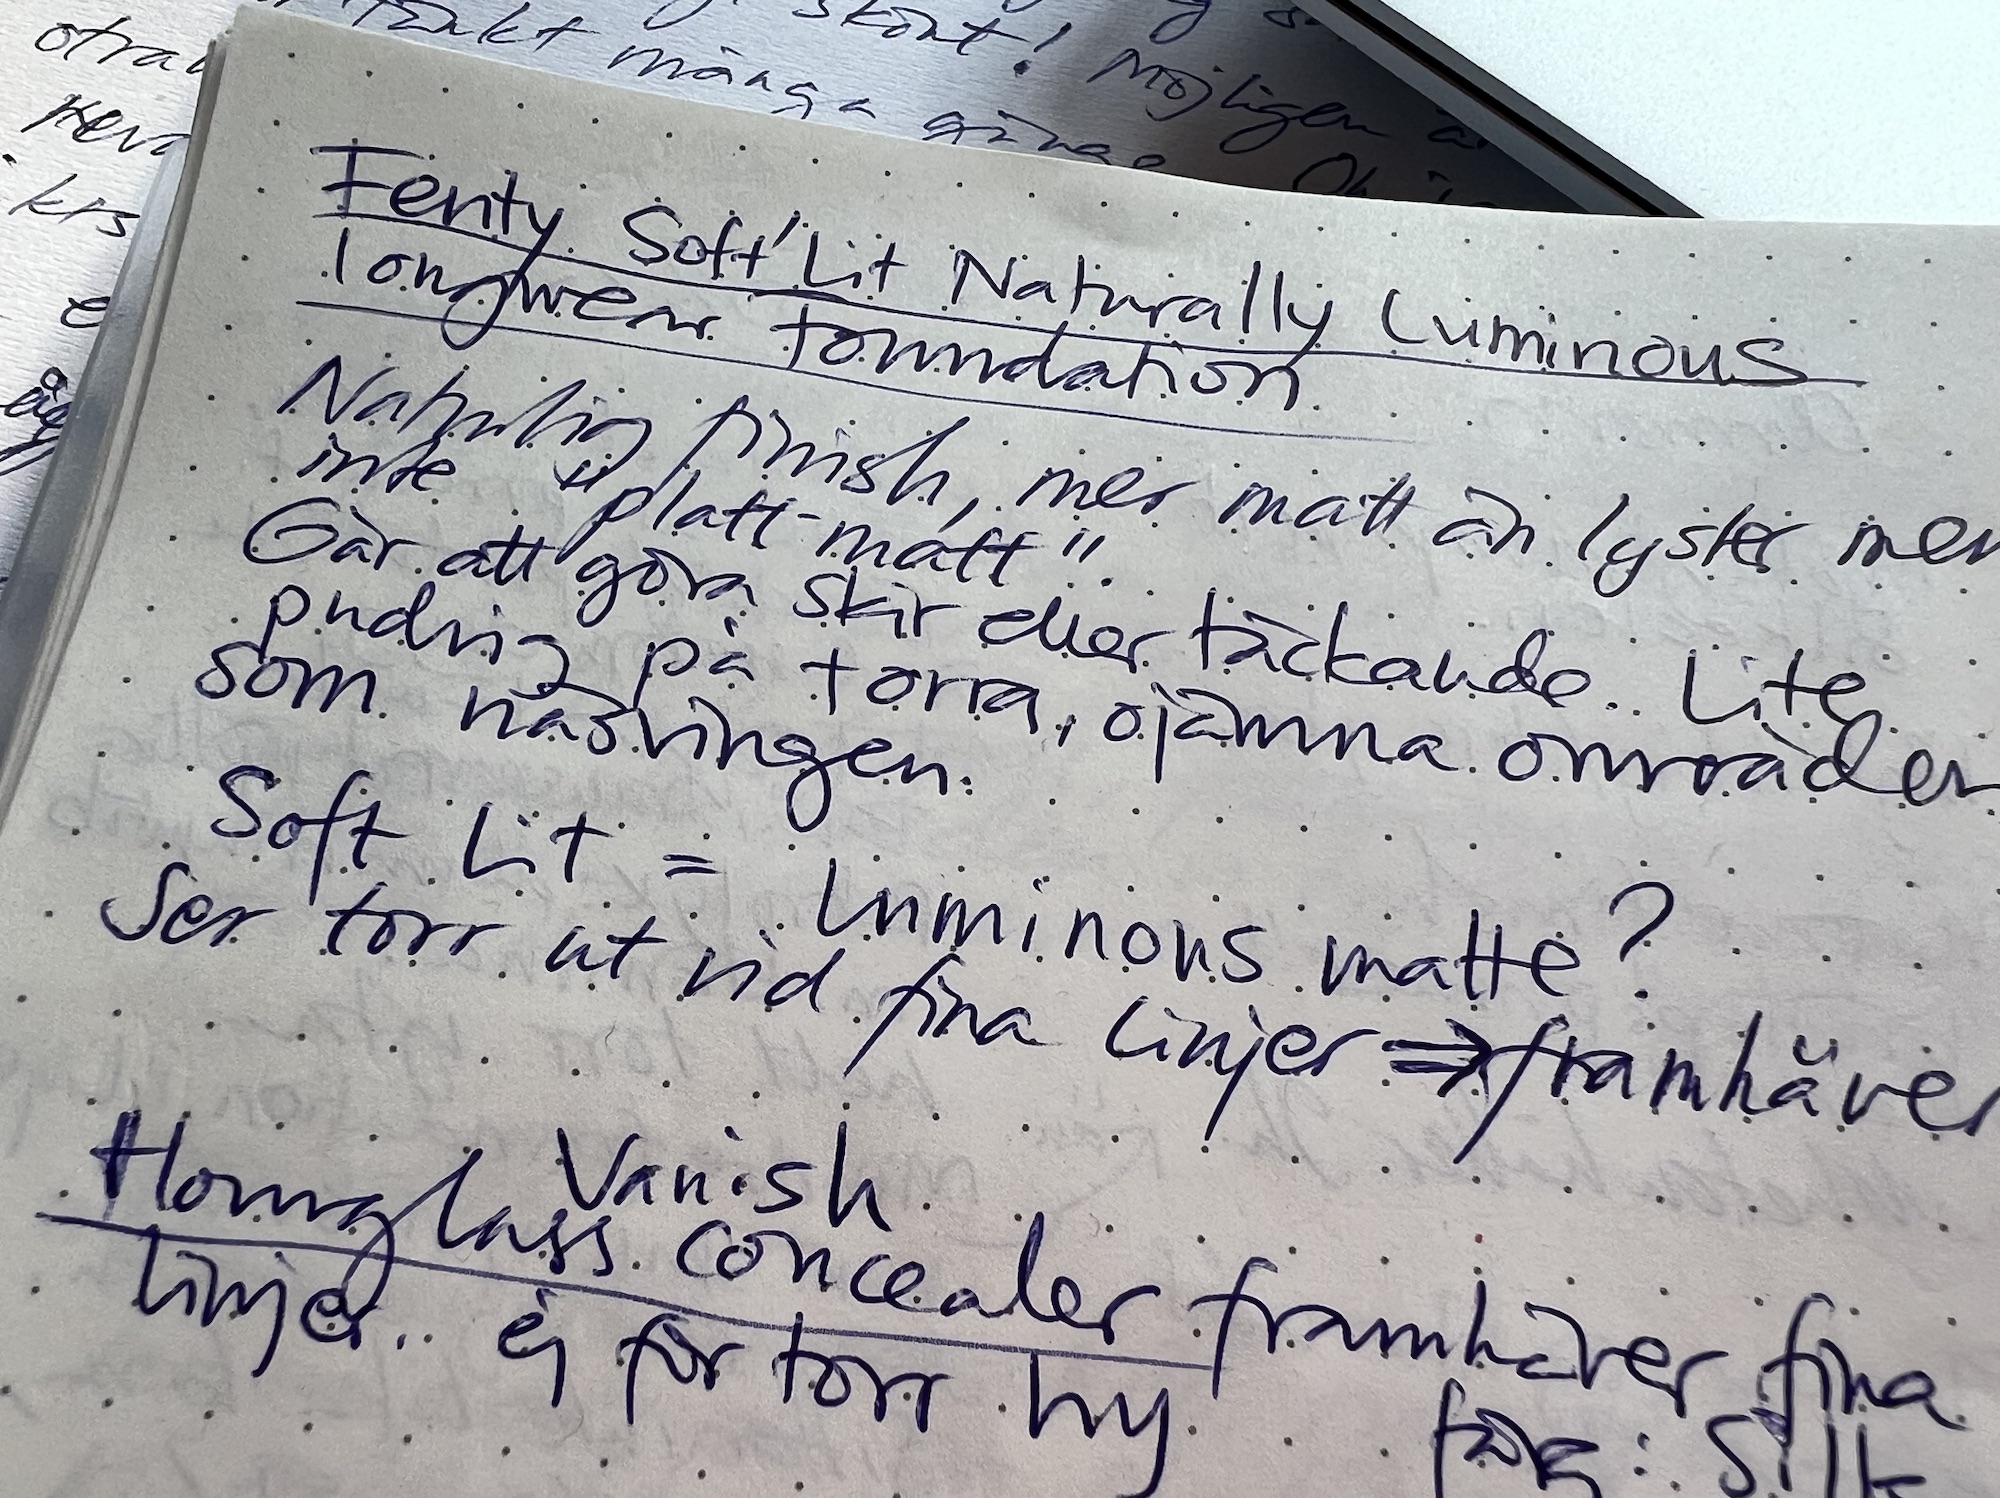 skönt!
tänkt många gånger Möjligen är
krs
Fenty Soft'Lit Naturally Luminous
longwear foundation
Naturlig finish, mer matt än lyster men
inte "platt-matt".
Går att göra skir eller täckande. Lite
pudrig på torra, ojämna områden
som näsvingen.
Soft Lit = Luminous matte?
Ser torr ut vid fina linjer ⇒ framhäver
Vanish
Hourglass concealer framhäver fina
linjer. ej för torr hy
färg: Silk